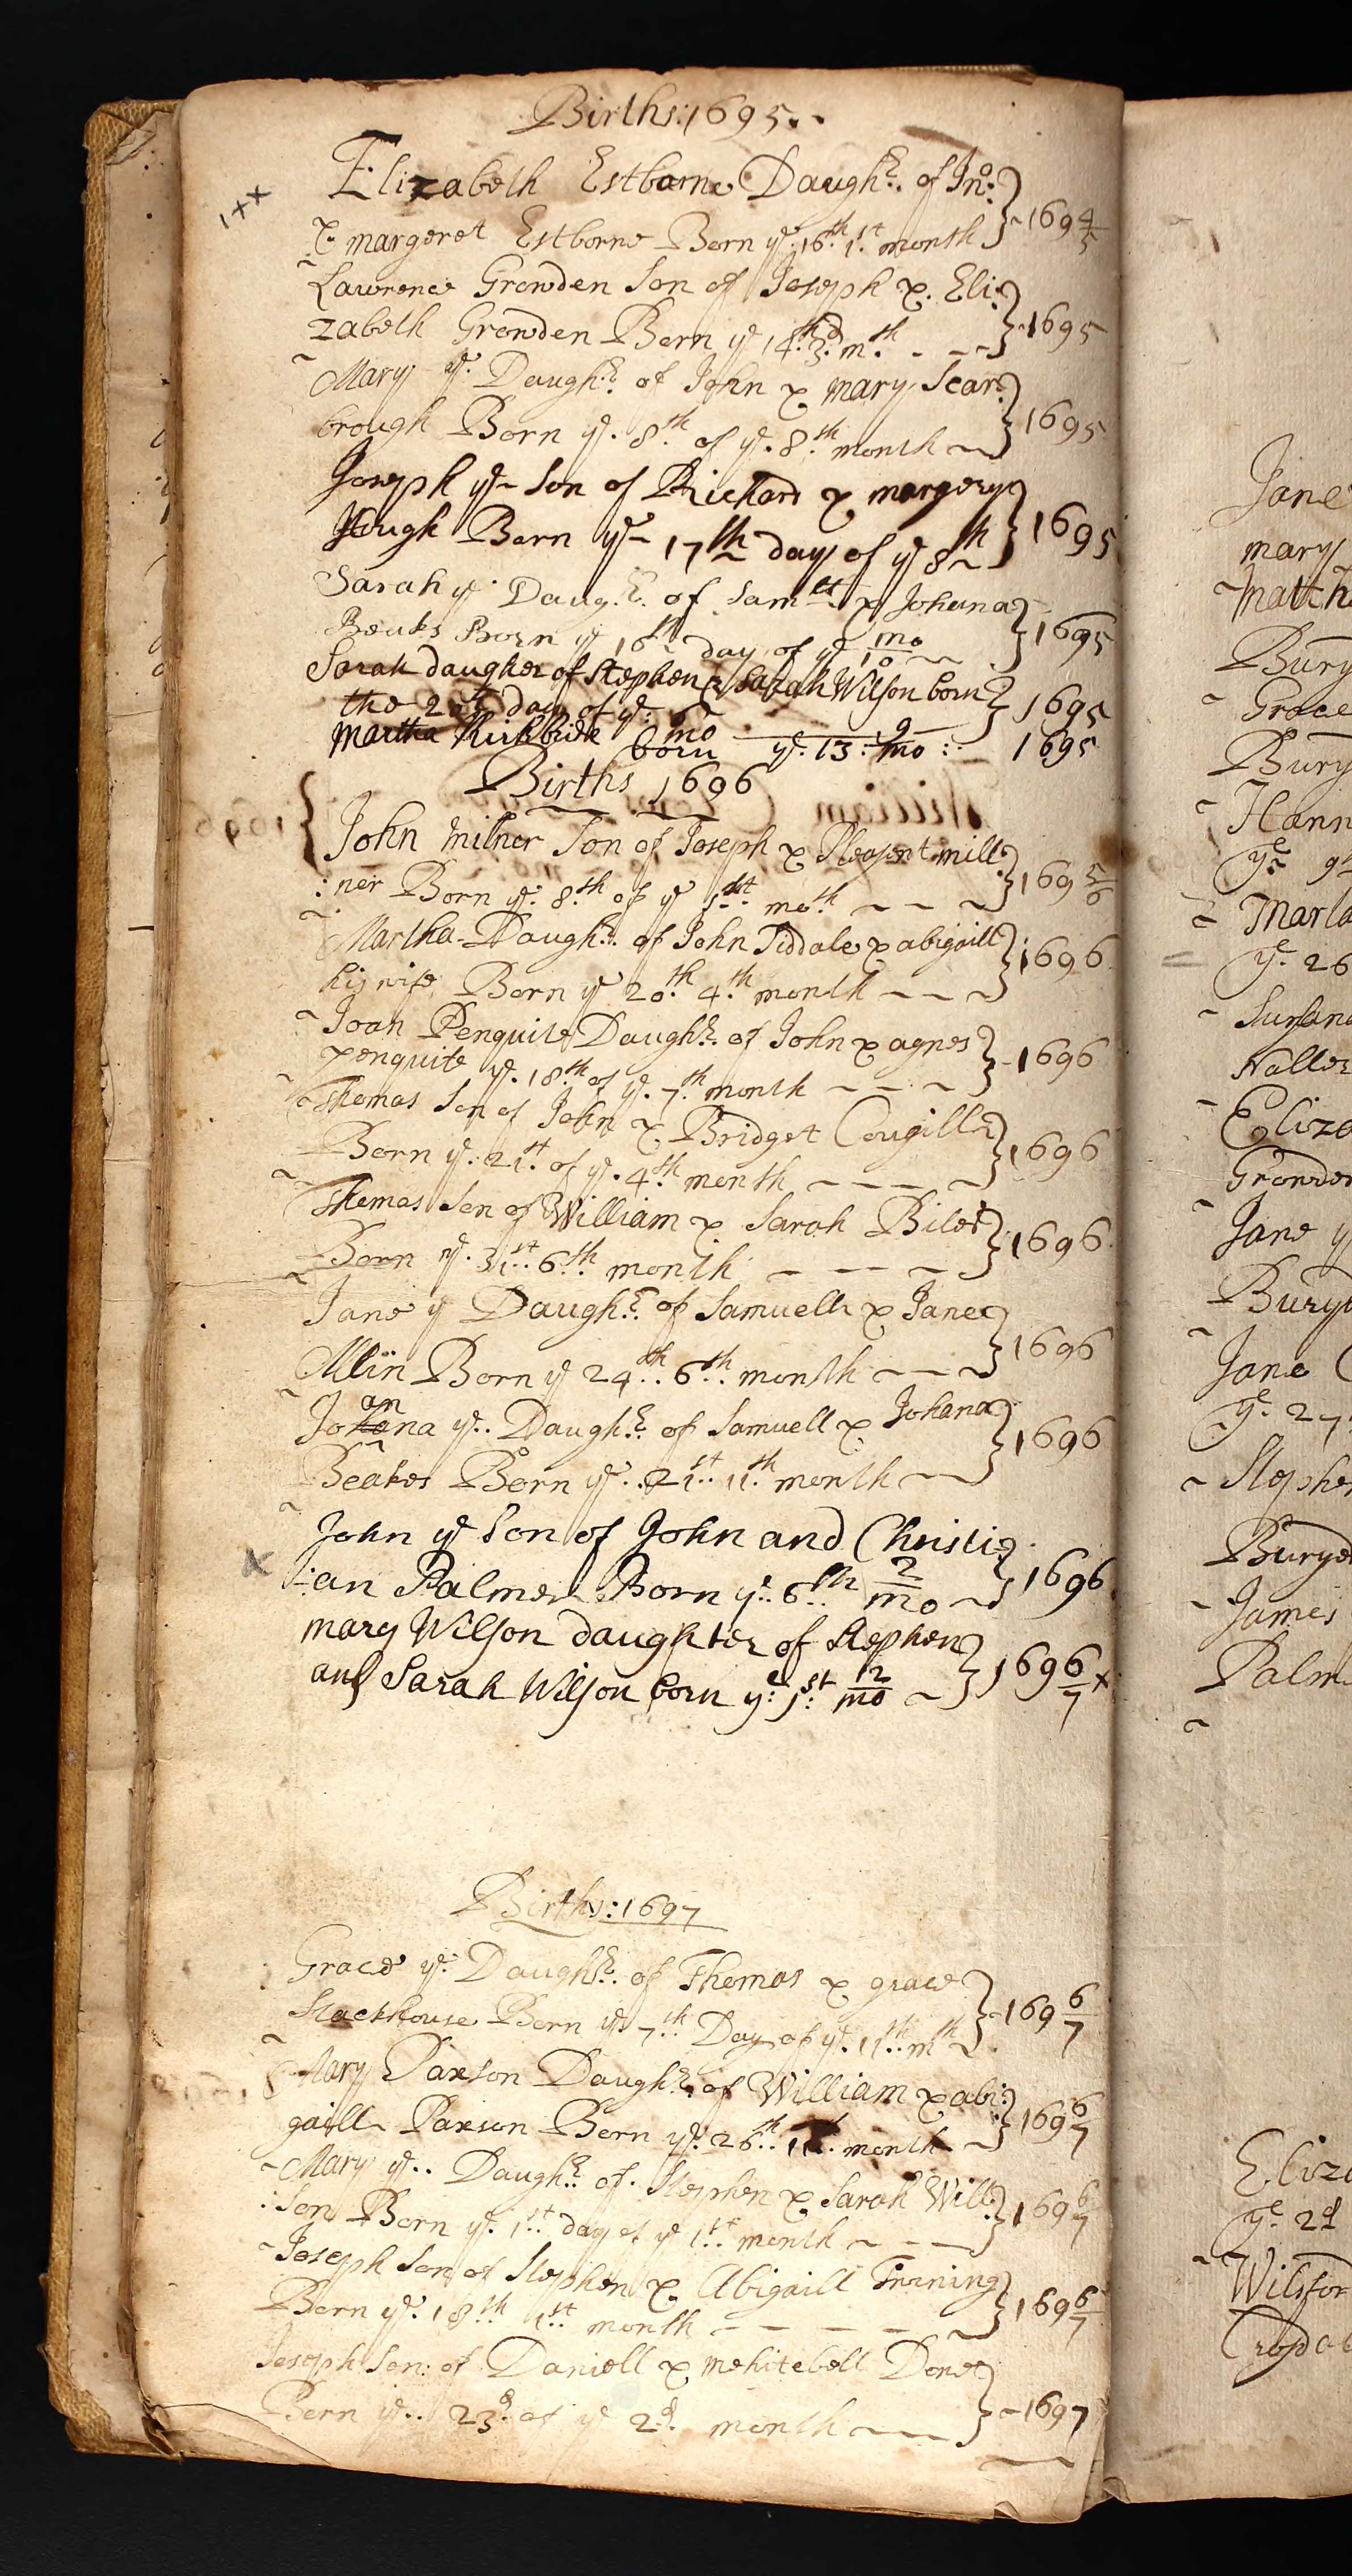 Births: 1695..
Elizabeth Estborne Daughr. of Jno:
& margeret Estborne Born ye. 16th. 1st. month } 1694/5
Lawrence Growden Son of Joseph & Eli:
zabeth Growden Born ye 14th. 3d. mth. } 1695
Mary ye. Daughr. of John & mary Scar:
brough Born ye. 8th of ye. 8th month } 1695
Joseph ye Son of Richard & margery
Hough Born ye 17th day of ye 8th } 1695
Sarah ye Daugr. of Samll & Johana
Beaks Born ye 16th day of ye 10 mo } 1695
Sarah daugher of Stephen & Sarah Wilson born
the day of ye. mo } 1695
Martha Kirkbride born ye. 13: 9 mo :- 1695
Births 1696
John Milner Son of Joseph & Pleasent mill:
:ner Born ye. 8th of ye 1st moth } 1695/6
Martha Daughr. of John Siddale & abigaill
his wife Born ye 20th 4th month } 1696
Joan Penquite Daughr. of John & agnes
penquite ye. 18th of ye. 7th month } 1696
Thomas Son of John & Bridget Cougill
Born ye. 21st of ye. 4th month } 1696
Thomas Son of William & Sarah Biles
Born ye. 31st 6th month } 1696
Jane ye Daughr. of Samuell & Jane
Allin Born ye 24th 6th month } 1696
Joana ye. Daughr. of Samuell & Johana
Beakes Born ye. 21st 11th month } 1696
John ye Son of John and Christi
:an Palmer Born ye. 6th 2 mo } 1696
mary Wilson daughter of Stephen
and Sarah Wilson born ye. 1st: 12 mo } 1696/7 x
Births: 1697
Grace ye. Daughr. of Thomas & grace
Stackhouse Born ye 7th Day of ye. 11th mth } 1696/7
Mary Paxson Daughr. of William & abi:
gaill Paxson Born ye. 26th month } 1696/7
Mary ye.. Daughr. of Stephen & Sarah Will:
:son Born ye. 1st day of ye 1st month } 1696/7
Joseph Son of Stephen & Abigaill Twining
Born ye. 18th 1st month } 1696/7
Joseph Son: of Daniell & mehitebell Done
Born ye.. 23d. of ye 2d. month } 1697
Jane
mary
Matth
Bury
Grace
Bury
Hann
ye 9
Marta
ye. 26
Susana
Walter
Eliza
Growden
Jane y
Bury
Jane C
ye. 27
Stephen
Burye
James
Palm
Eliza
ye. 2d
Wilsfor